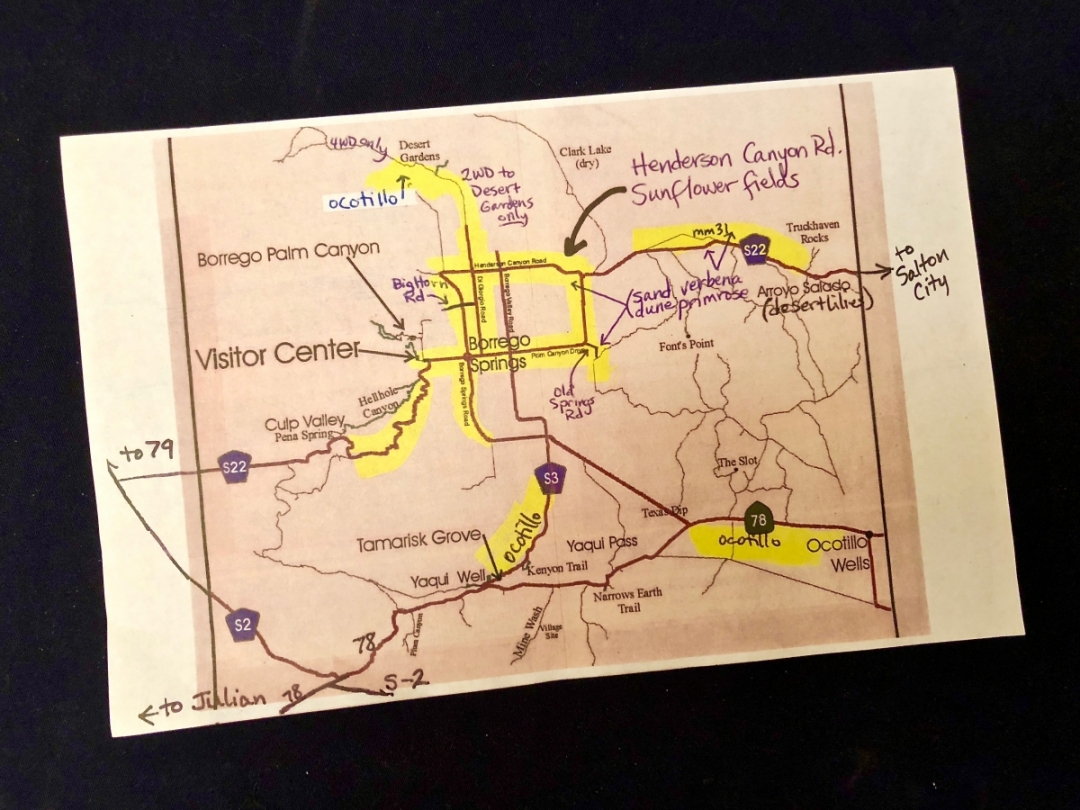 4WD only
Desert
Gardens
ocotillo
2WD to
Desert
Gardens
only
Clark Lake
(dry)
Henderson Canyon Rd.
Sunflower fields
mm31
S22
Truckhaven
Rocks
to
Salton
City
Borrego Palm Canyon
Big Horn
Rd
Henderson Canyon Road
Di Giorgio Road
Borrego Valley Road
sand verbena
dune primrose
Arroyo Salado
(desert lilies)
Visitor Center
Borrego
Springs
Palm Canyon Drive
Font's Point
Old
Springs
Rd
Borrego Springs Road
Hellhole
Canyon
Culp Valley
Pena Spring
to 79
S22
S3
The Slot
Texas Dip
78
ocotillo
Ocotillo
Wells
Tamarisk Grove
ocotillo
Yaqui Pass
Yaqui Well
Kenyon Trail
Narrows Earth
Trail
S2
78
Canyon
Mine Wash
Village
Site
S-2
to Julian
78